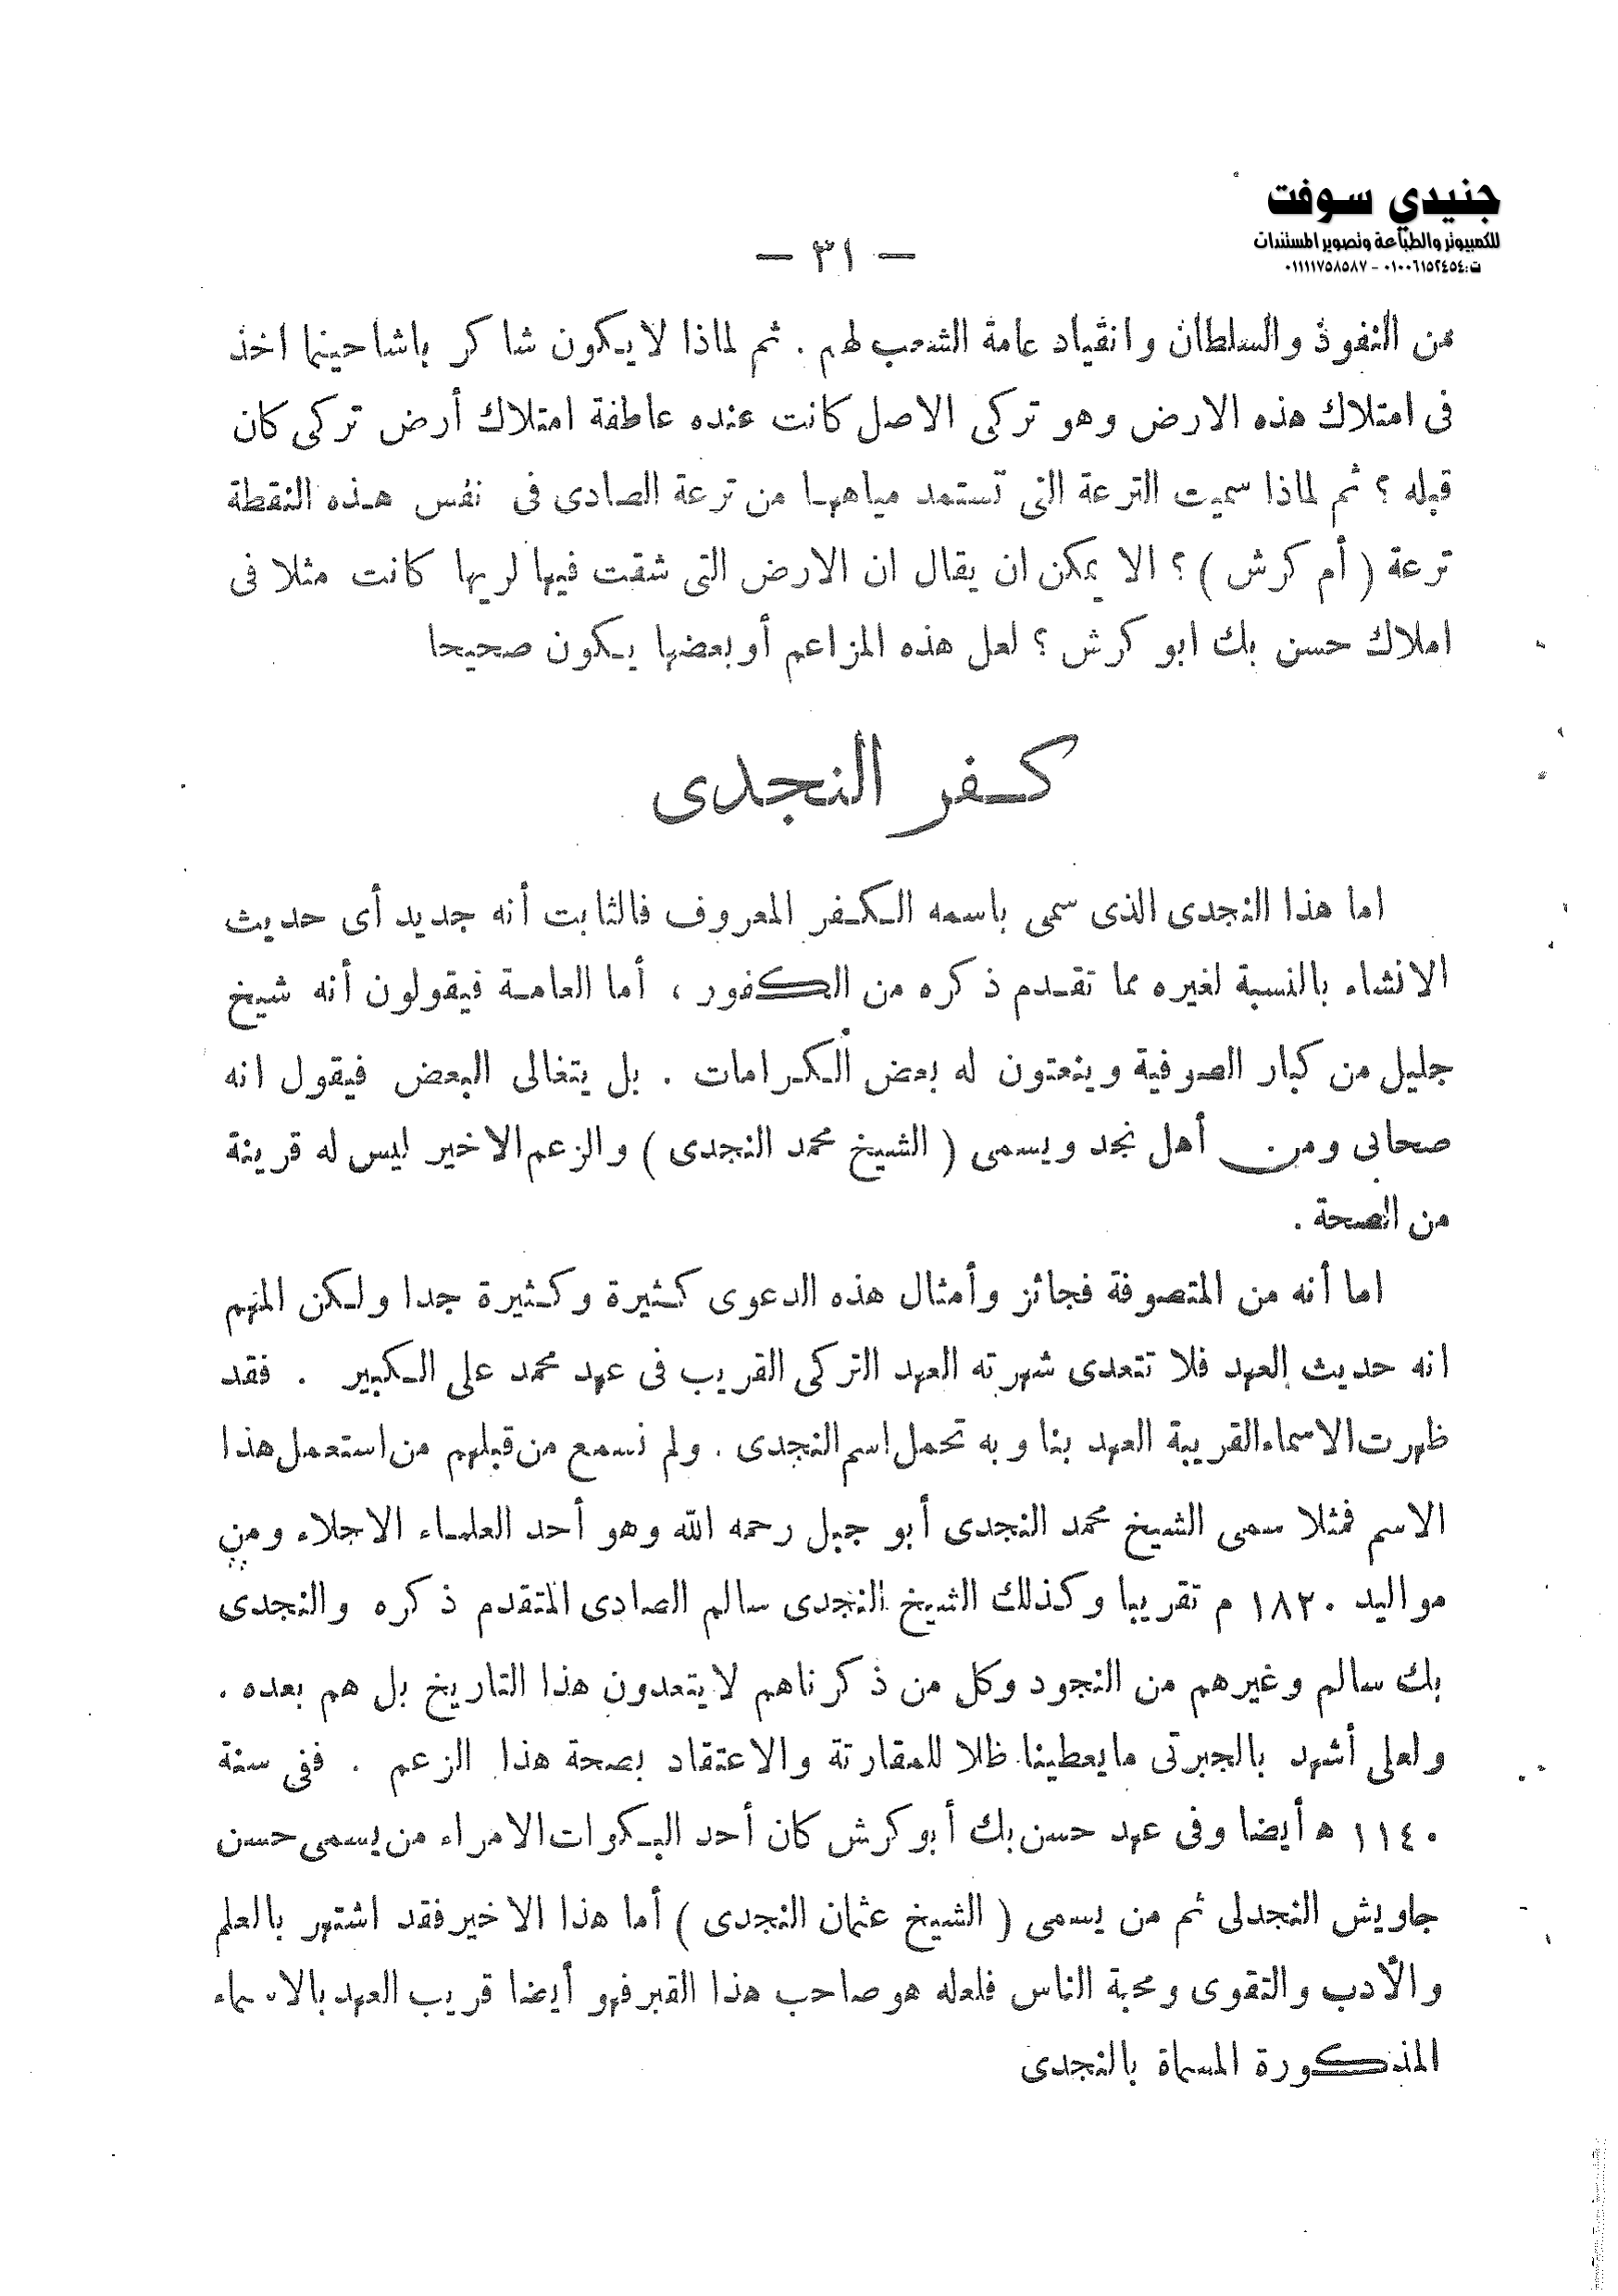 جنيدي سوفت
للكمبيوتر والطباعة وتصوير المستندات
ت: ٠١٠٠٦١٥٢٤٥٤ - ٠١١١١٧٥٨٥٨٧
— ٣١ —
من النفوذ والسلطان وانقياد عامة الشعب لهم . ثم لماذا لا يكون شاكر باشا حينما اخذ
فى امتلاك هذه الارض وهو تركى الاصل كانت عنده عاطفة امتلاك أرض تركى كان
قبله ؟ ثم لماذا سميت الترعة التى تستمد مياهها من ترعة الصادى فى نفس هذه النقطة
ترعة ( أم كرش ) ؟ الا يمكن ان يقال ان الارض التى شقت فيها لريها كانت مثلا فى
املاك حسن بك ابو كرش ؟ لعل هذه المزاعم أو بعضها يكون صحيحا
كفر النجدى
اما هذا النجدى الذى سمى باسمه الكفر المعروف فالثابت أنه جديد أى حديث
الانشاء بالنسبة لغيره مما تقدم ذكره من الكفور ، أما العامة فيقولون أنه شيخ
جليل من كبار الصوفية وينعتون له بعض الكرامات . بل يتغالى البعض فيقول انه
صحابى ومن أهل نجد ويسمى ( الشيخ محمد النجدى ) والزعم الاخير ليس له قرينة
من الصحة .
اما أنه من المتصوفة فجائز وأمثال هذه الدعوى كثيرة وكثيرة جدا ولكن المهم
انه حديث العهد فلا تتعدى شهرته العهد التركى القريب فى عهد محمد على الكبير . فقد
ظهرت الاسماء القريبة العهد بنا وبه تحمل اسم النجدى . ولم نسمع من قبلهم من استعمل هذا
الاسم فمثلا سمى الشيخ محمد النجدى أبو جبل رحمه الله وهو أحد العلماء الاجلاء ومن
مواليد ١٨٢٠ م تقريبا وكذلك الشيخ النجدى سالم الصادى المتقدم ذكره والنجدى
بك سالم وغيرهم من النجود وكل من ذكرناهم لا يتعدون هذا التاريخ بل هم بعده .
ولعلى أشهد بالجبرتى ما يعطينا ظلا للمقارنة والاعتقاد بصحة هذا الزعم . ففى سنة
١١٤٠ هـ أيضا وفى عهد حسن بك أبو كرش كان أحد البكوات الامراء من يسمى حسن
جاويش النجدلى ثم من يسمى ( الشيخ عثمان النجدى ) أما هذا الاخير فقد اشتهر بالعلم
والأدب والتقوى ومحبة الناس فلعله هو صاحب هذا القبر فهو أيضا قريب العهد بالاسماء
المذكورة المسماة بالنجدى